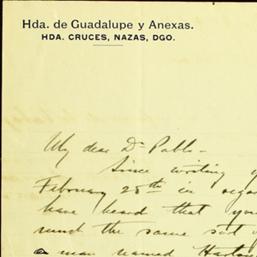 Hda. de Guadalupe y Anexas.
HDA. CRUCES, NAZAS, DGO.
My dear Dr Pabb-
Since writing
February 28th in
have heard that you
the same
a man named